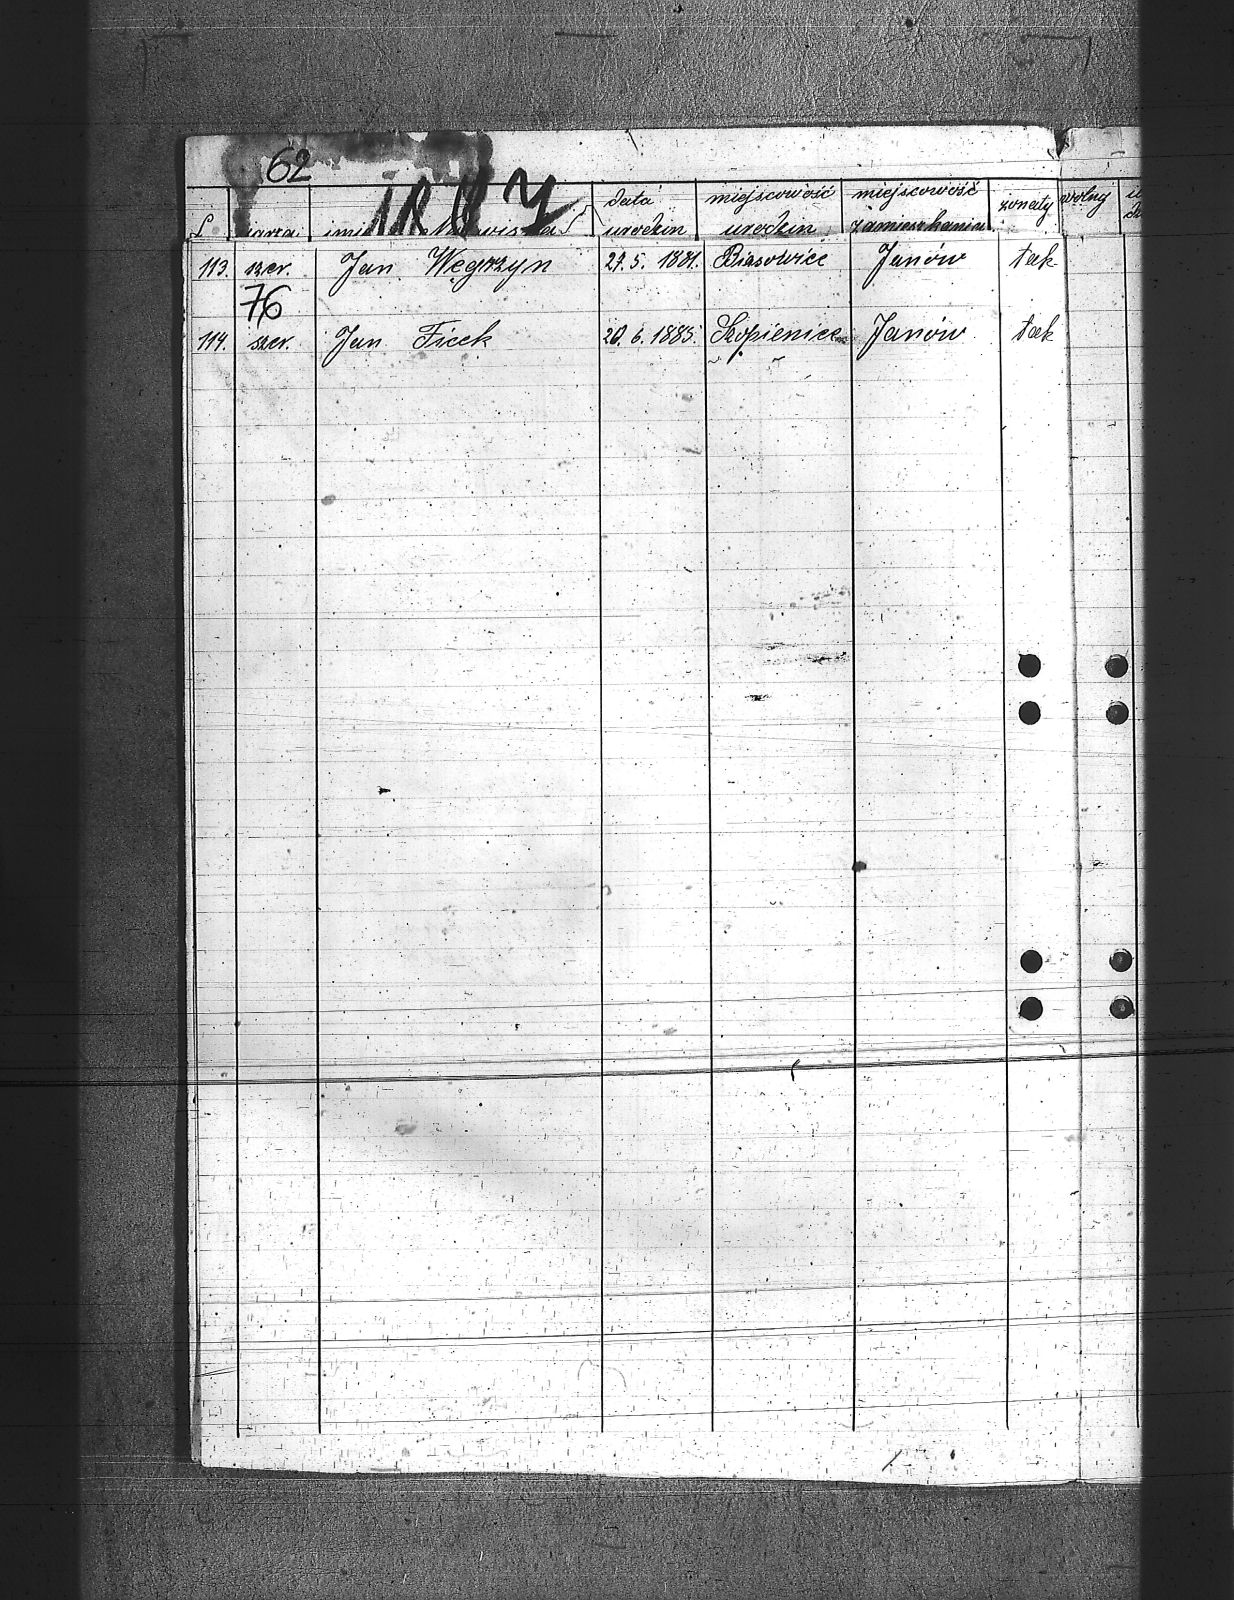 62
data miejscowość miejscowość żonaty wolny
urodzin urodzin zamieszkania
113. szer. Jan Węgrzyn 27. 5. 1881. Janów tak
76
114. szer. Jan Ficek 20. 6. 1885. Szopienice Janów tak